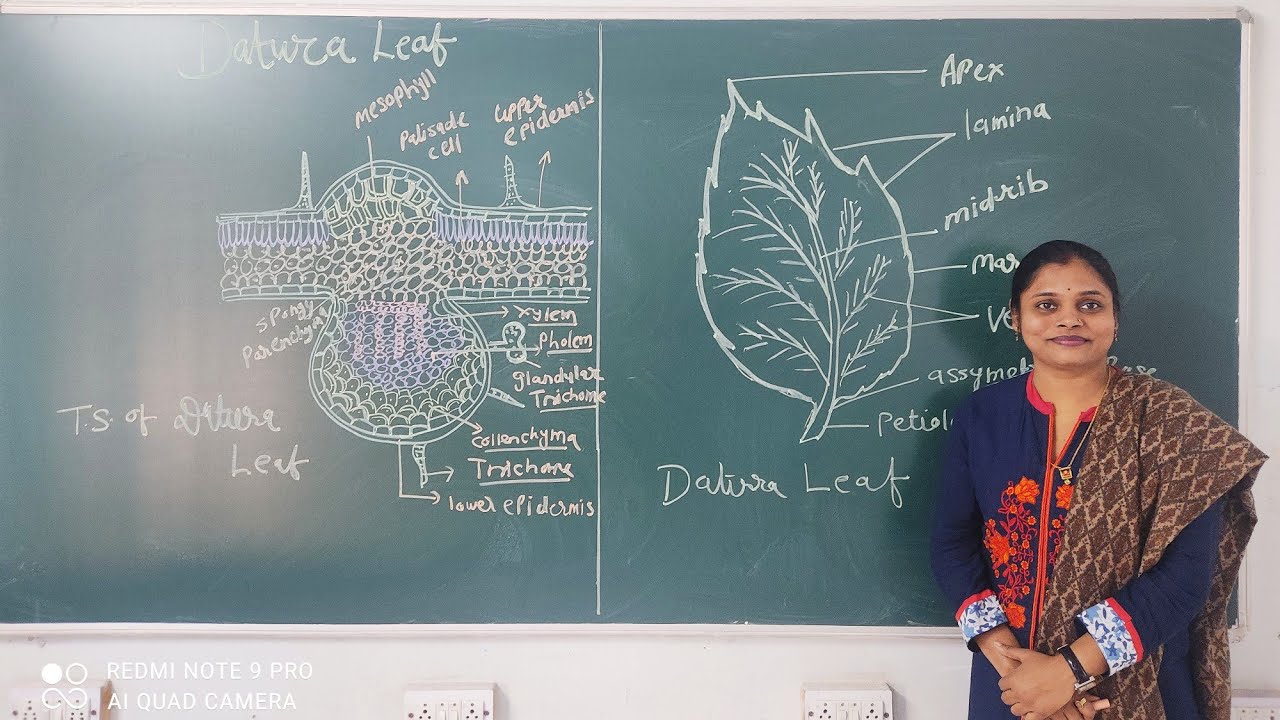 Datura Leaf
mesophyll
palisade
cell
upper
epidermis
spongy
parenchyma
xylem
Pholem
glandular
Trichome
collenchyma
Trichome
lower epidermis
T.S. of Datura
Leaf
Apex
lamina
midrib
Datura Leaf
REDMI NOTE 9 PRO
AI QUAD CAMERA